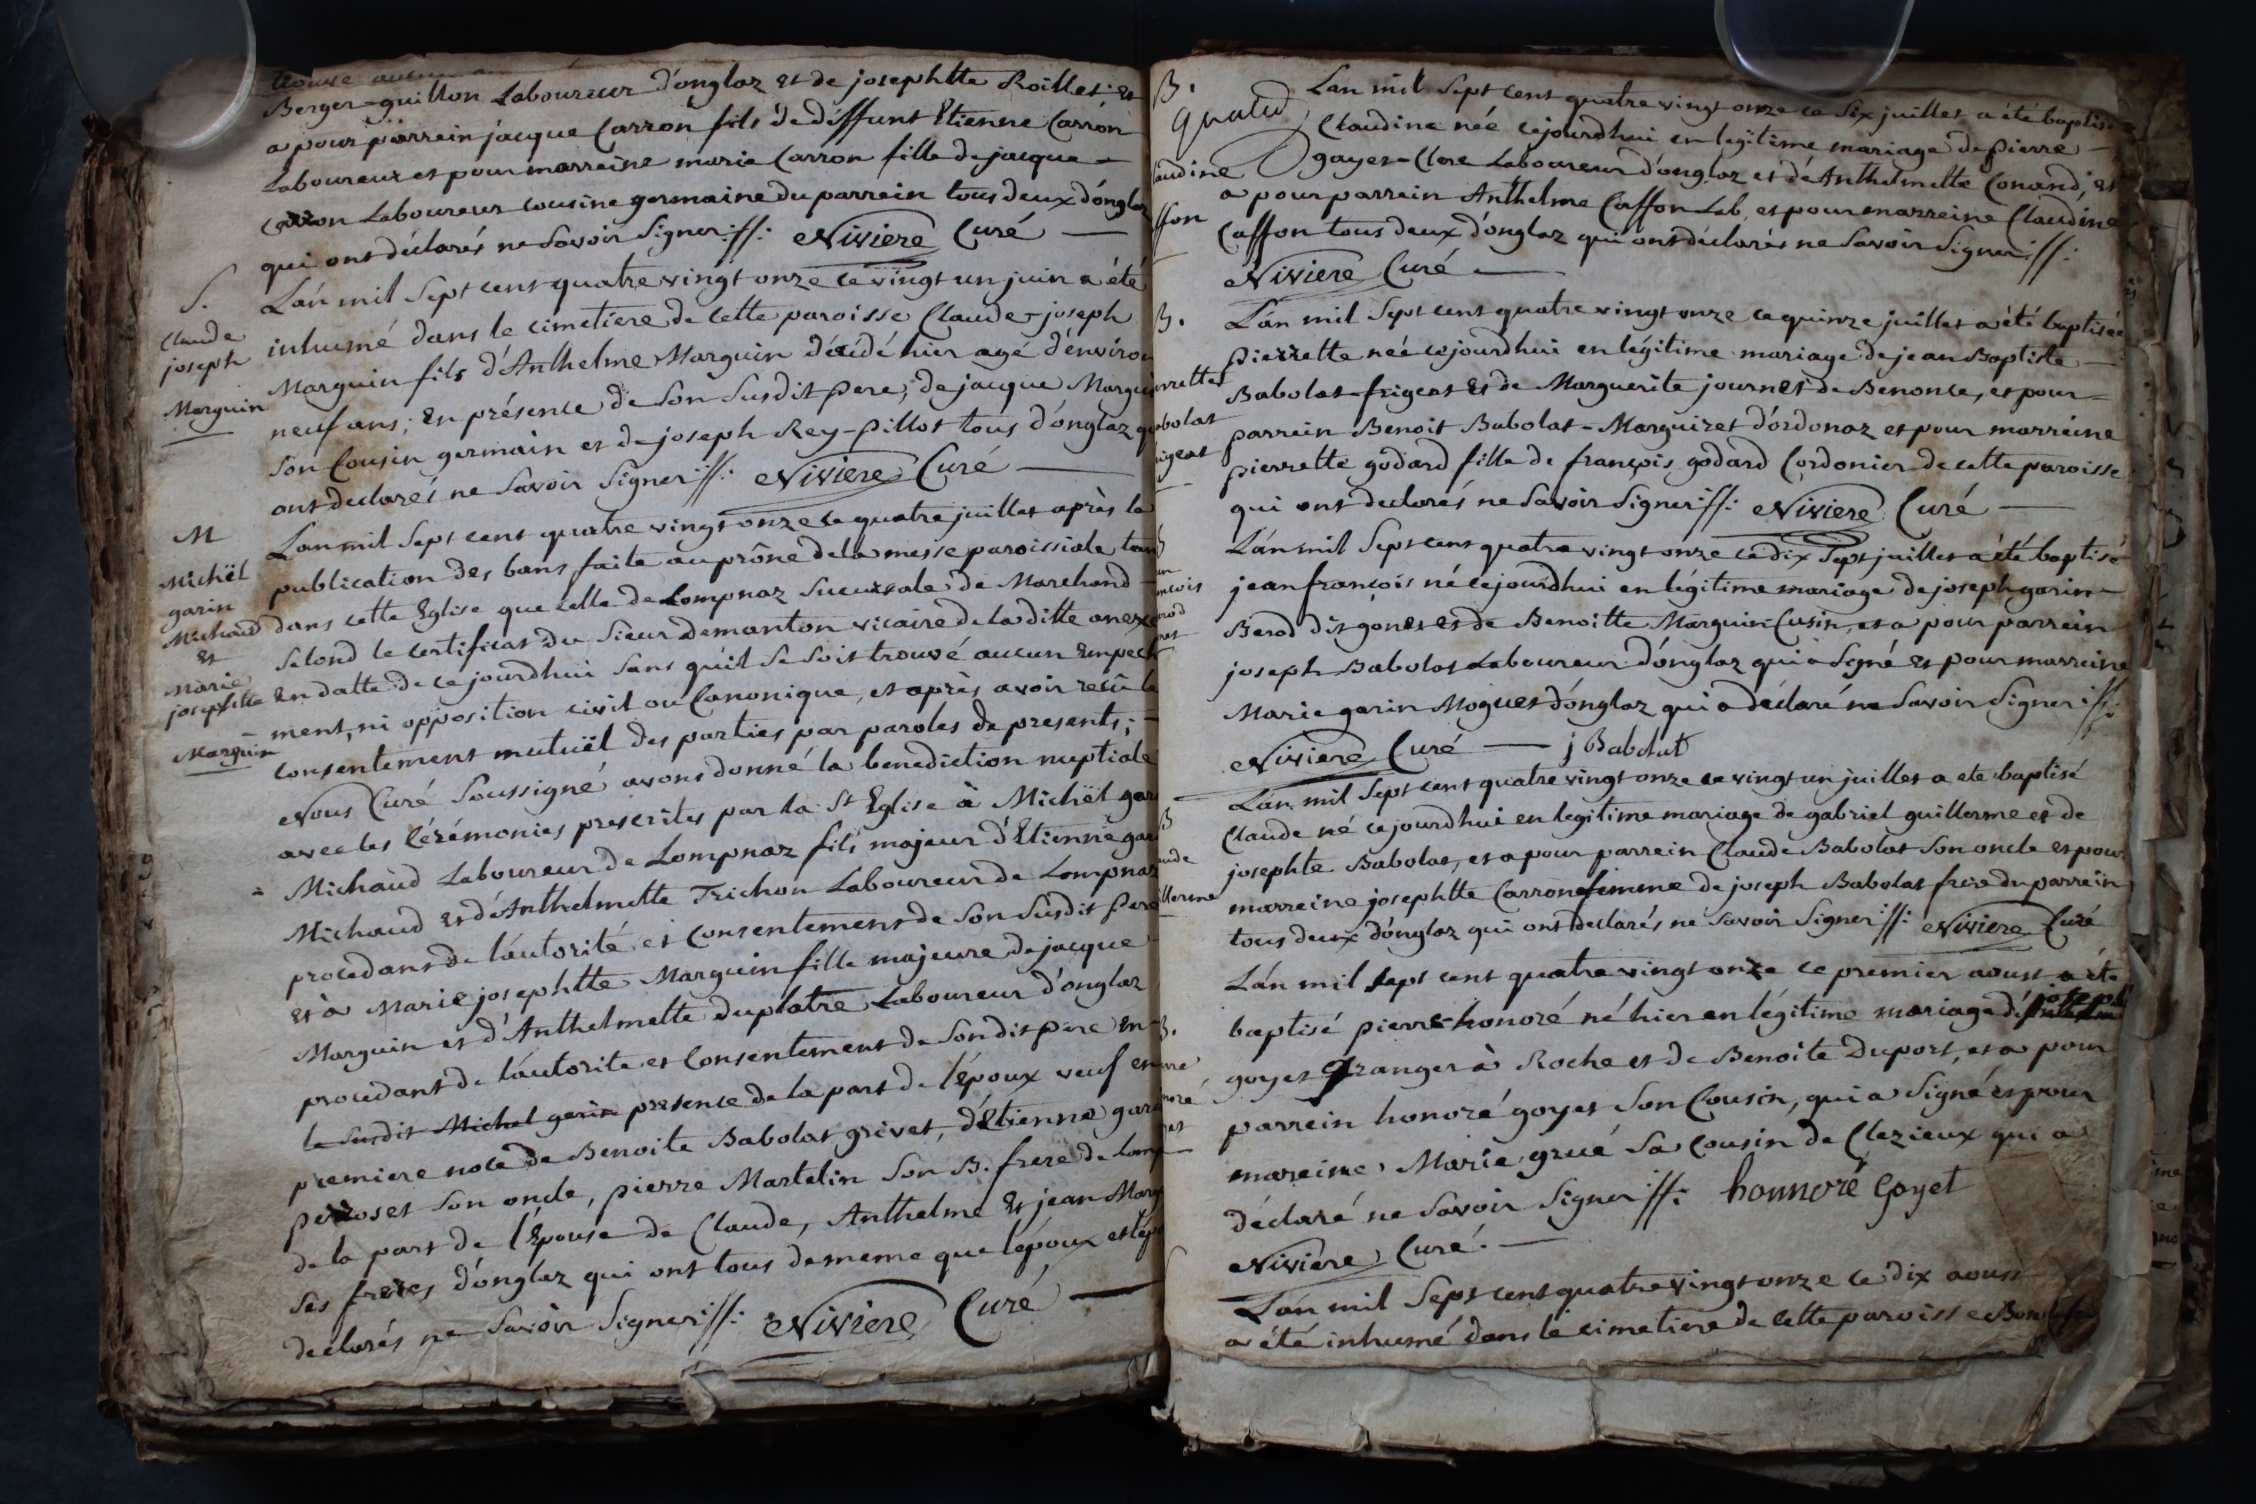 Berger-guillon Laboureur d'onglaz et de josephtte Roillet; et
a pour parrein jacque Carron fils de deffunt Etienne Carron
Laboureur et pour marreine marie Carron fille de jacque
Carron Laboureur cousine germaine du parrein tous deux d'onglaz
qui ont déclarés ne savoir signer://: Niviere Curé
S.
Claude
joseph
Marguin
Lan mil sept cent quatre vingt onze ce vingt un juin a été
inhumé dans le cimetiere de cette paroisse Claude-joseph
Marguin fils d'Anthelme Marguin décédé hier agé d'environ
neuf ans; en présence de son susdit pere, de jacque Marguin
son Cousin germain et de joseph Rey-pillot tous d'onglaz qui
ont declarés ne savoir signer://: Niviere Curé
M
Michël
garin
Michaud
et
Marie
josephtte
Marguin
Lan mil sept cent quatre vingt onze ce quatre juillet après la
publication des bans faite au prône de la messe paroissiale tant
dans cette Eglise que celle de Lompnaz sucursale de Marchand
selond le certificat du sieur Demanton vicaire de la ditte anexe
en datte de ce jourdhui sans qu'il se soit trouvé aucun Empech
ment, ni opposition civil ou Canonique, et après avoir resû le
consentement mutuël des parties par paroles de presents;
Nous Curé soussigné avons donné la benediction nuptiale
avec les Cérémonies prescrites par la St Eglise à Michël gar
Michaud Laboureur de Lompnaz fils majeur d'Etienne gar
Michaud et d'Anthelmette Trichon Laboureur de Lompnaz
procedant de l'autorité et consentement de son susdit pere
et à Marie josephtte Marguin fille majeure de jacque
Marguin et d'Anthelmette duplatre Laboureur d'onglaz
procedant de l'autorite et Consentement de sondit pere en
le susdit Michel garin presence de la part de l'époux veuf en
premiere noce de Benoite Babolat grivet, d'Etienne gar
perroset son oncle, pierre Martelin son B. frere de Lomp
de la part de l'Epouse de Claude, Anthelme et jean Marg
ses freres d'onglaz qui ont tous de meme que l'époux et l'épo
declarés ne savoir signer://: Niviere Curé
B.
audine
ffon
Lan mil sept cent quatre vingt onze ce six juillet a été baptisé
Claudine née cejourdhui en legitime mariage de pierre
goyet-Clere Laboureur d'onglaz et d'Anthelmette Conand, et
a pour parrein Anthelme Caffon Lab. et pour marreine Claudine
Caffon tous deux d'onglaz qui ont déclarés ne savoir signer://:
Niviere Curé
B.
errette
abolat
rigeat
L'an mil sept cent quatre vingt onze ce quinze juillet a été baptisée
pierrette née cejourdhui en légitime mariage de jean Baptiste
Babolat-frigeat et de Marguerite journet de Benonce, et pour
parrein Benoit Babolat-Marguiret d'ordonaz et pour marreine
pierrette godard fille de françois godard Cordonier de cette paroisse
qui ont declarés ne savoir signer://: Niviere Curé
B
ancois
L'an mil sept cent quatre vingt onze ce dix sept juillet a été baptisé
jean françois né cejourdhui en légitime mariage de joseph garin
Berod dit gonet et de Benoitte Marguin-Cusin, et a pour parrein
joseph Babolat Laboureur d'onglaz qui a signé et pour marreine
Marie garin Moguet d'onglaz qui a déclaré ne savoir signer://:
Niviere Curé j Babolat
B
aude
illerme
L'an mil sept cent quatre vingt onze ce vingt un juillet a ete baptisé
Claude né cejourdhui en legitime mariage de gabriel guillerme et de
josephte Babolat, et a pour parrein Claude Babolat son oncle et pour
marreine josephtte Carron femme de joseph Babolat frere du parrein
tous deux d'onglaz qui ont declarés ne savoir signer://: Niviere Curé
B.
L'an mil sept cent quatre vingt onze ce premier aoust a été
baptisé pierre-honoré né hier en légitime mariage de joseph
goyet granger à Roche et de Benoite Duport, et a pour
parrein honoré goyet son Cousin, qui a signé et pour
mareine Marie grué sa cousin de Clezieux qui a
déclaré ne savoir signer://: honnoré Goyet
Niviere Curé.
S
L'an mil sept cent quatre vingt onze ce dix aoust
a été inhumé dans le cimetiere de cette paroisse